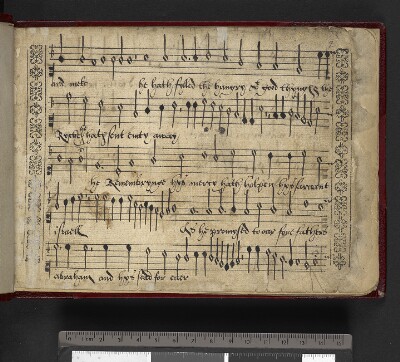 and meke he hath filled the hungry wt good thynges the
Ryche hath sent emty away
he Remembrynge hys mercy hath holpen hys servant
israell As he promysed to our fore fathers
abraham and hys sede for ever